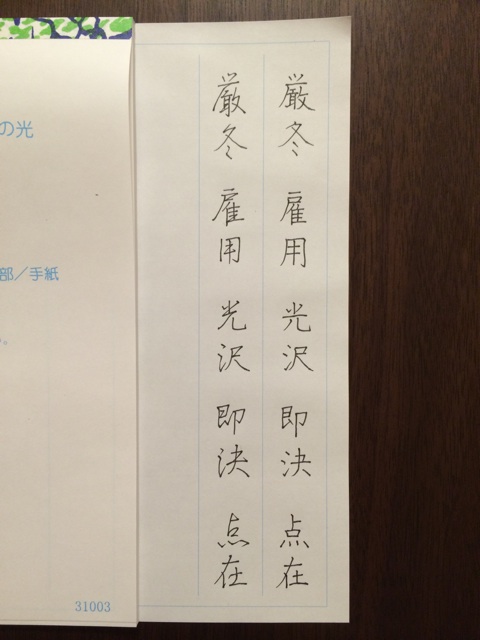 厳冬 雇用 光沢 即決 点在
厳冬 雇用 光沢 即決 点在
の光
部／手紙
。
31003